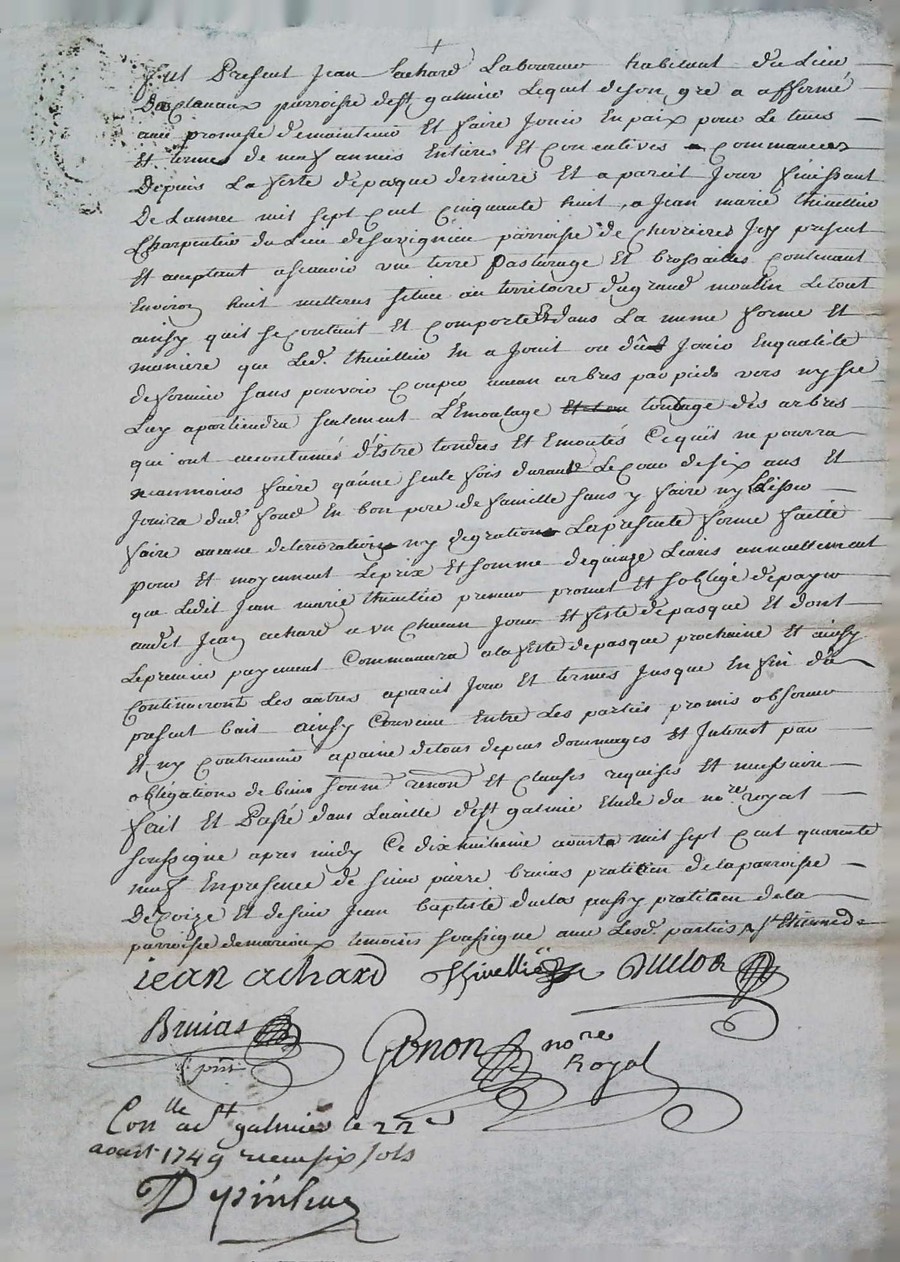 fut Present Jean achard Laboureur habitant du Lieu
Des planaux parroisse de st galmier Lequel de son gré a affermé
avec promesse de maintenir Et faire Jouir En paix pour Le tems
Et terme de neuf années Entières Et Consecutives Commancées
Depuis La feste de paque dernière Et a pareil Jour finissant
De Lannee mil sept cent cinquante huit, a Jean marie thivellier
Charpentier du Lieu de savignieu parroisse de Chevrieres Icy present
Et acceptant ascavoir une terre Pasturage Et brossailles contenant
Environ huit metterees scituee au territoire du grand moulin Le tout
ainsy quil se contient Et comporte Et dans La meme forme Et
maniere que Led. thivellier En a Jouit ou dû Jouir En qualité
de fermier sans pouvoir couper aucun arbres par pieds vers ny sec
Luy apartiendra seulement L'Emoulage tondage des arbres
qui ont accoutumés d'Estre tondus Et Emoutés Ce qu'il ne pourra
neanmoins faire qu'une seule fois durant Le cour de six ans Et
Jouira dud. fond En bon pere de famille sans y faire ny Laisser
faire aucune deterioration ny degration La presente ferme faitte
pour Et moyennant Le prix Et somme de quinze Livres annuellement
que Ledit Jean marie thivellier preneur promet Et s'oblige de payer
audit Jean achard a un chacun Jour Et feste de pasque Et dont
Le premier payement Commancera a la feste de pasque prochaine Et ainsy
Continueront Les autres a pareil Jour Et termes Jusque En fin du
present bail ainsy Convenu Entre Les parties promis observer
Et ny contrevenir a paine de tous depens dommages Et Interest par
obligations de biens soum. renon. Et Clauses requises Et necessaire
fait Et Passé dans La ville de st galmier Etude du no.re royal
soussigné apres midy Ce dix huitieme aoust mil sept cent quarante
neuf En presence de sieur pierre bruias pratitien de la parroisse
De Coize Et de sieur Jean baptiste duclos pratitien de la
parroisse de marioux temoins soussigné avec Lesd. parties
jean achard thivellier Duclos
Bruias
pnt
Gonon no.re
Royal
Con.lle a st galmier le 22e
aoust 1749 receu six sols